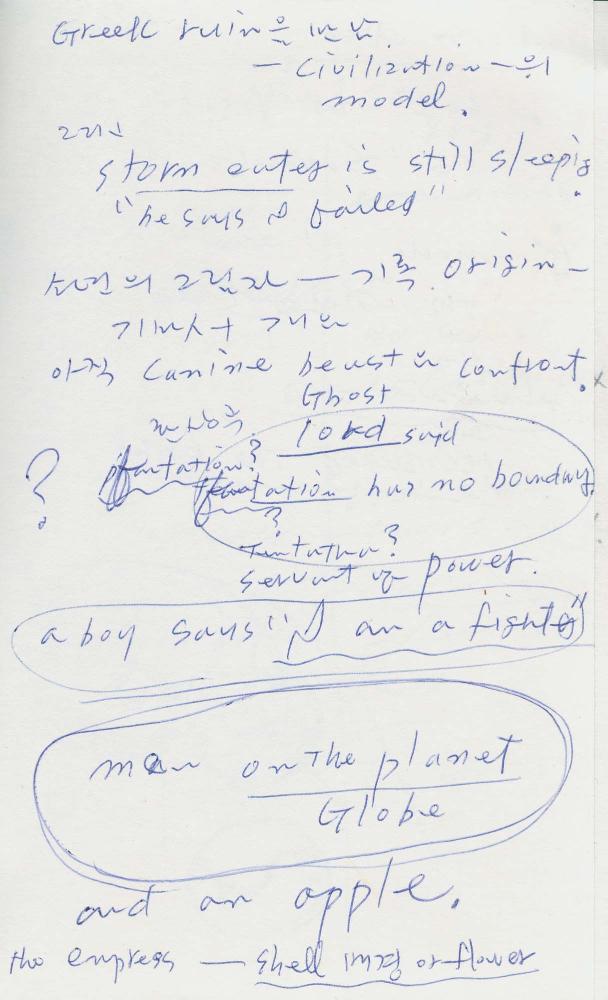 Greek ruin을
— Civilization — 의
model.
그리스
storm eater is still sleeping.
"he says I failed"
소년의 그림자 — 기록. origin —
아직 Canine beast와 confront.
Ghost
lord said
?
has no boundary.
?
servant of power.
a boy says "I am a fighter"
man on the planet
Globe
and an apple.
the empress — shell or flower